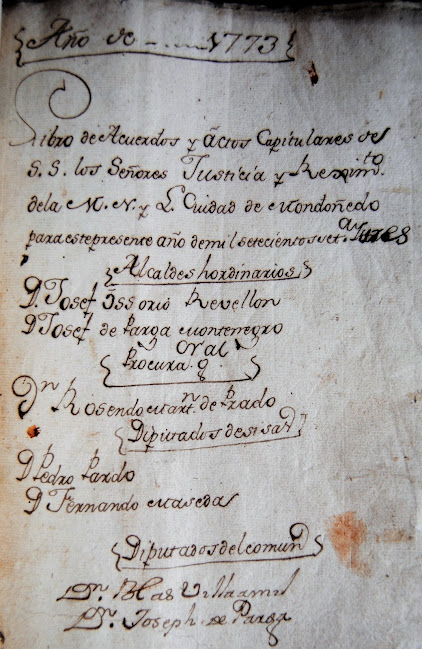 Año de 1773
Libro de Acuerdos y actos Capitulares de
S. S. los Señores Justicia y Reximto
dela M. N. y L. Ciudad de Mondoñedo
para este presente año demil setecientos setta y tres
Alcaldes hordinarios
Dn Josef Ossorio Revellon
D Josef de Parga Montenegro
Procura.or Gral
Dn Rosendo Martn de Prado
Diputados desisad
D Pedro Pardo
D Fernando Maseda
Diputados del comun
Dn Blas Villaamil
Dn Joseph de Parga